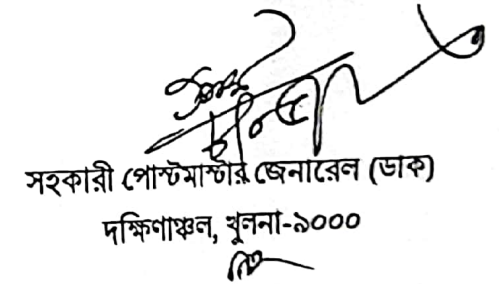 সহকারী পোস্টমাস্টার জেনারেল (ডাক)
দক্ষিণাঞ্চল, খুলনা-৯০০০